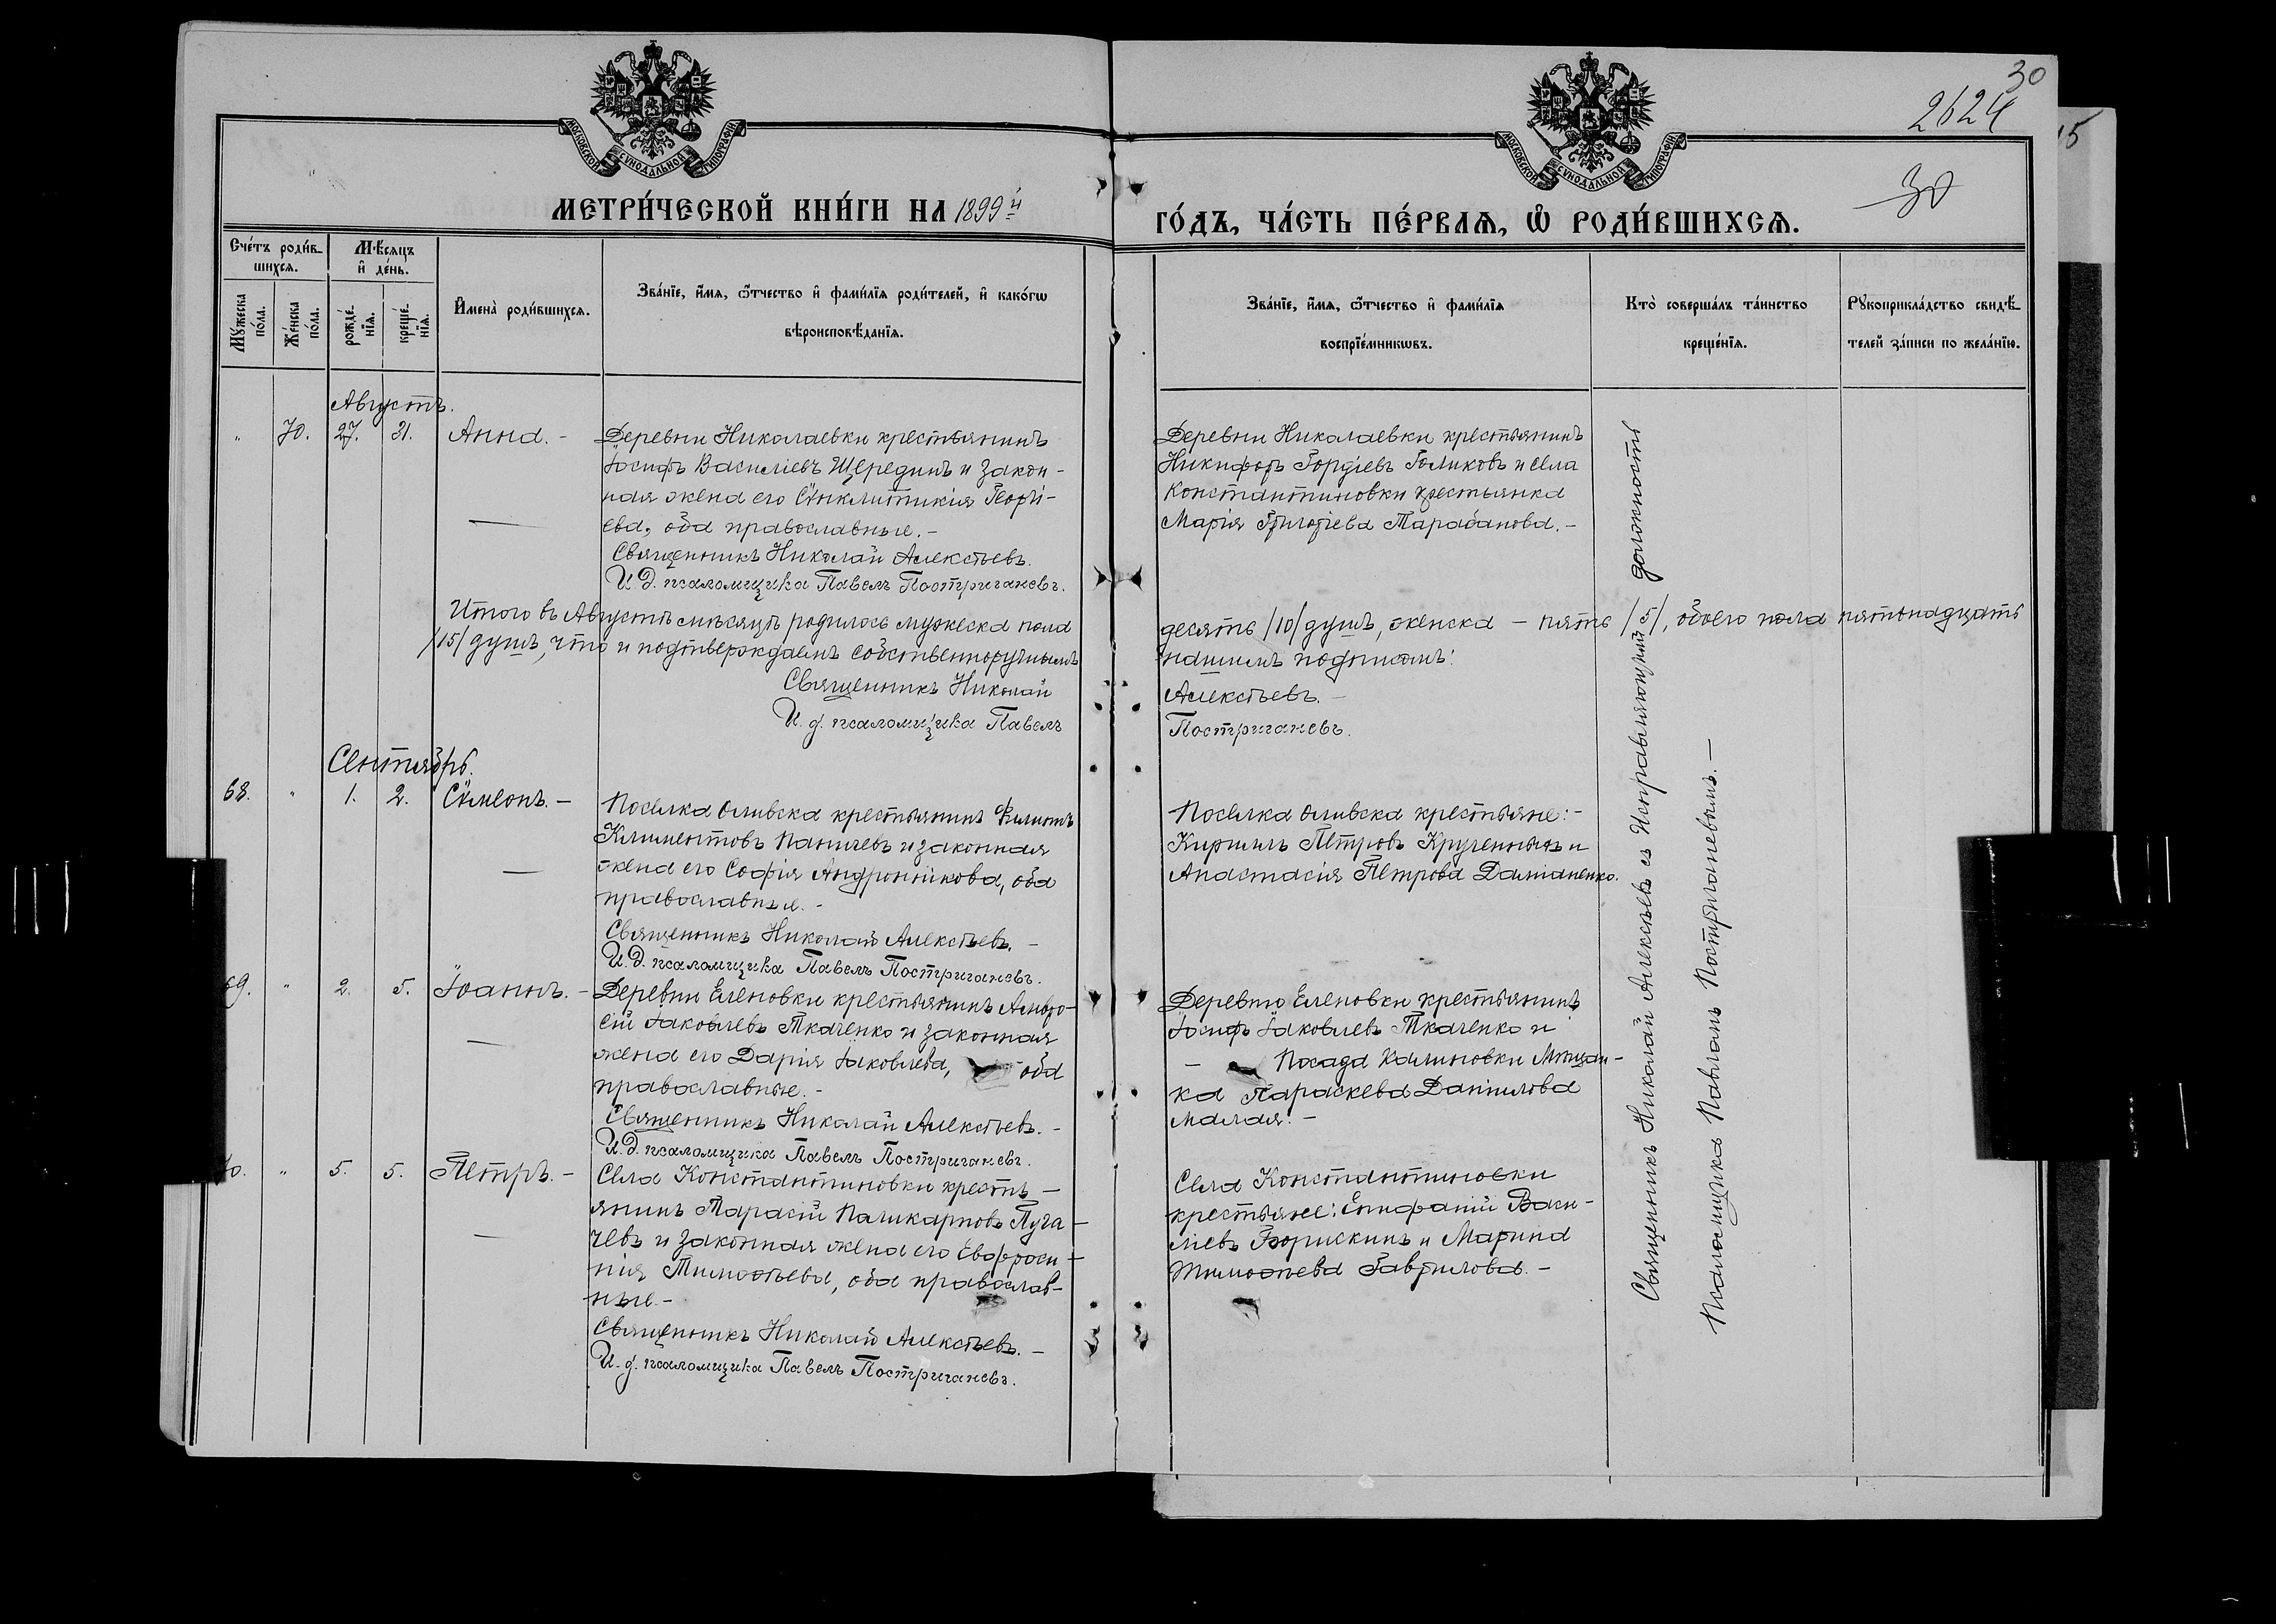 30
2624
15
30
МОСКОВСКОЙ СѴНОДАЛЬНОЙ ТИПОГРАФІИ
МОСКОВСКОЙ СѴНОДАЛЬНОЙ ТИПОГРАФІИ
МЕТРИ́ЧЕСКОЙ КНИ́ГИ НА 1899й
ГО́ДЪ, ЧА́СТЬ ПЕ́РВАѦ, Ѡ҆ РОДИ́ВШИХСѦ.
Сче́тъ роди́в-
шихсѧ.
Мѣ́сѧцъ
и҆ де́нь.
Мꙋжеска
по́ла.
Же́нска
по́ла.
рожде́-
нїѧ.
креще́-
нїѧ.
И҆мена̀ роди́вшихсѧ.
Зва́нїе, и҆́мѧ, ѻ҆́тчество и҆ фами́лїѧ роди́телей, и҆ како́гѡ
вѣроисповѣ́данїѧ.
Зва́нїе, и҆́мѧ, ѻ҆́тчество и҆ фами́лїѧ
воспрїе́мникѡвъ.
Кто̀ соверша́лъ та́инство
креще́нїѧ.
Рꙋкоприкла́дство свидѣ́-
телей за́писи по жела́нїю.
Августъ.
" 70. 27. 31. Анна. -
Деревни Николаевки крестьянинъ
Іосифъ Василіевъ Щерединъ и закон-
ная жена его Сѵнклитикія Георгі-
ева, оба православные. -
Священникъ Николай Алексѣевъ.
И. Д. псаломщика Павелъ Постригачевъ.
Деревни Николаевки крестьянинъ
Никифоръ Гордіевъ Голиковъ и села
Константиновки крестьянка
Марія Григоріева Тарабанова. -
Итого въ Августѣ мѣсяцѣ родилось мужеска пола
десять /10/ душъ, женска - пять /5/, обоего пола пятьнадцать
/15/ душъ, что и подтверждаемъ собственноручнымъ
нашимъ подписомъ:
Священникъ Николай
Алексѣевъ. -
И. д. псаломщика Павелъ
Постригачевъ.
Сентябрь.
68. " 1. 2. Сѵмеонъ. -
Поселка Оливска крестьянинъ Филиппъ
Климентовъ Паничевъ и законная
жена его Софія Андроникова, оба
православные. -
Священникъ Николай Алексѣевъ. -
И. Д. псаломщика Павелъ Постригачевъ.
Поселка Оливска крестьяне: -
Кириллъ Петровъ Крученныхъ и
Анастасія Петрова Даміаненко.
69. " 2. 5. Іоаннъ. -
Деревни Еленовки крестьянинъ Амвро-
сій Іаковлевъ Ткаченко и законная
жена его Дарія Іаковлева, оба
православные. -
Священникъ Николай Алексѣевъ. -
И. Д. псаломщика Павелъ Постригачевъ.
Деревню Еленовки крестьянинъ
Іосифъ Іаковлевъ Ткаченко и
- Посада Калиновки Мѣщан-
ка Параскева Даніилова
Малая. -
70. " 5. 5. Петръ. -
Села Константиновки кресть -
янинъ Тарасій Паликарповъ Пуга -
чевъ и законная жена его Евфроси -
нія Тимоѳеева, оба православ-
ные. -
Священникъ Николай Алексѣевъ. -
И. д. псаломщика Павелъ Постригачевъ.
Села Константиновки
крестьяне: Епифаній Васи -
ліевъ Борискинъ и Марина
Тимоѳеева Гаврилова. -
Священникъ Николай Алексѣевъ съ Исправляющимъ должность
Псаломщика Павломъ Постригачевымъ. -